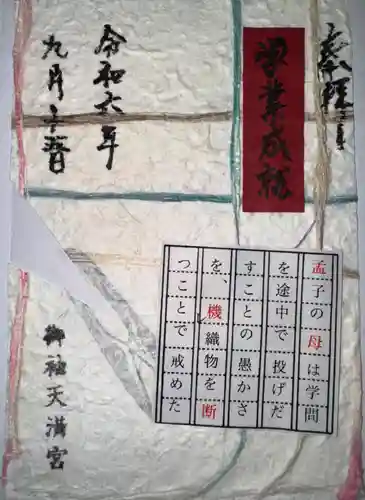 奉拝
學業成就
令和六年
九月十五日
孟子の母は学問
を途中で投げだ
すことの愚かさ
を、機織物を断
つことで戒めた
御袖天満宮